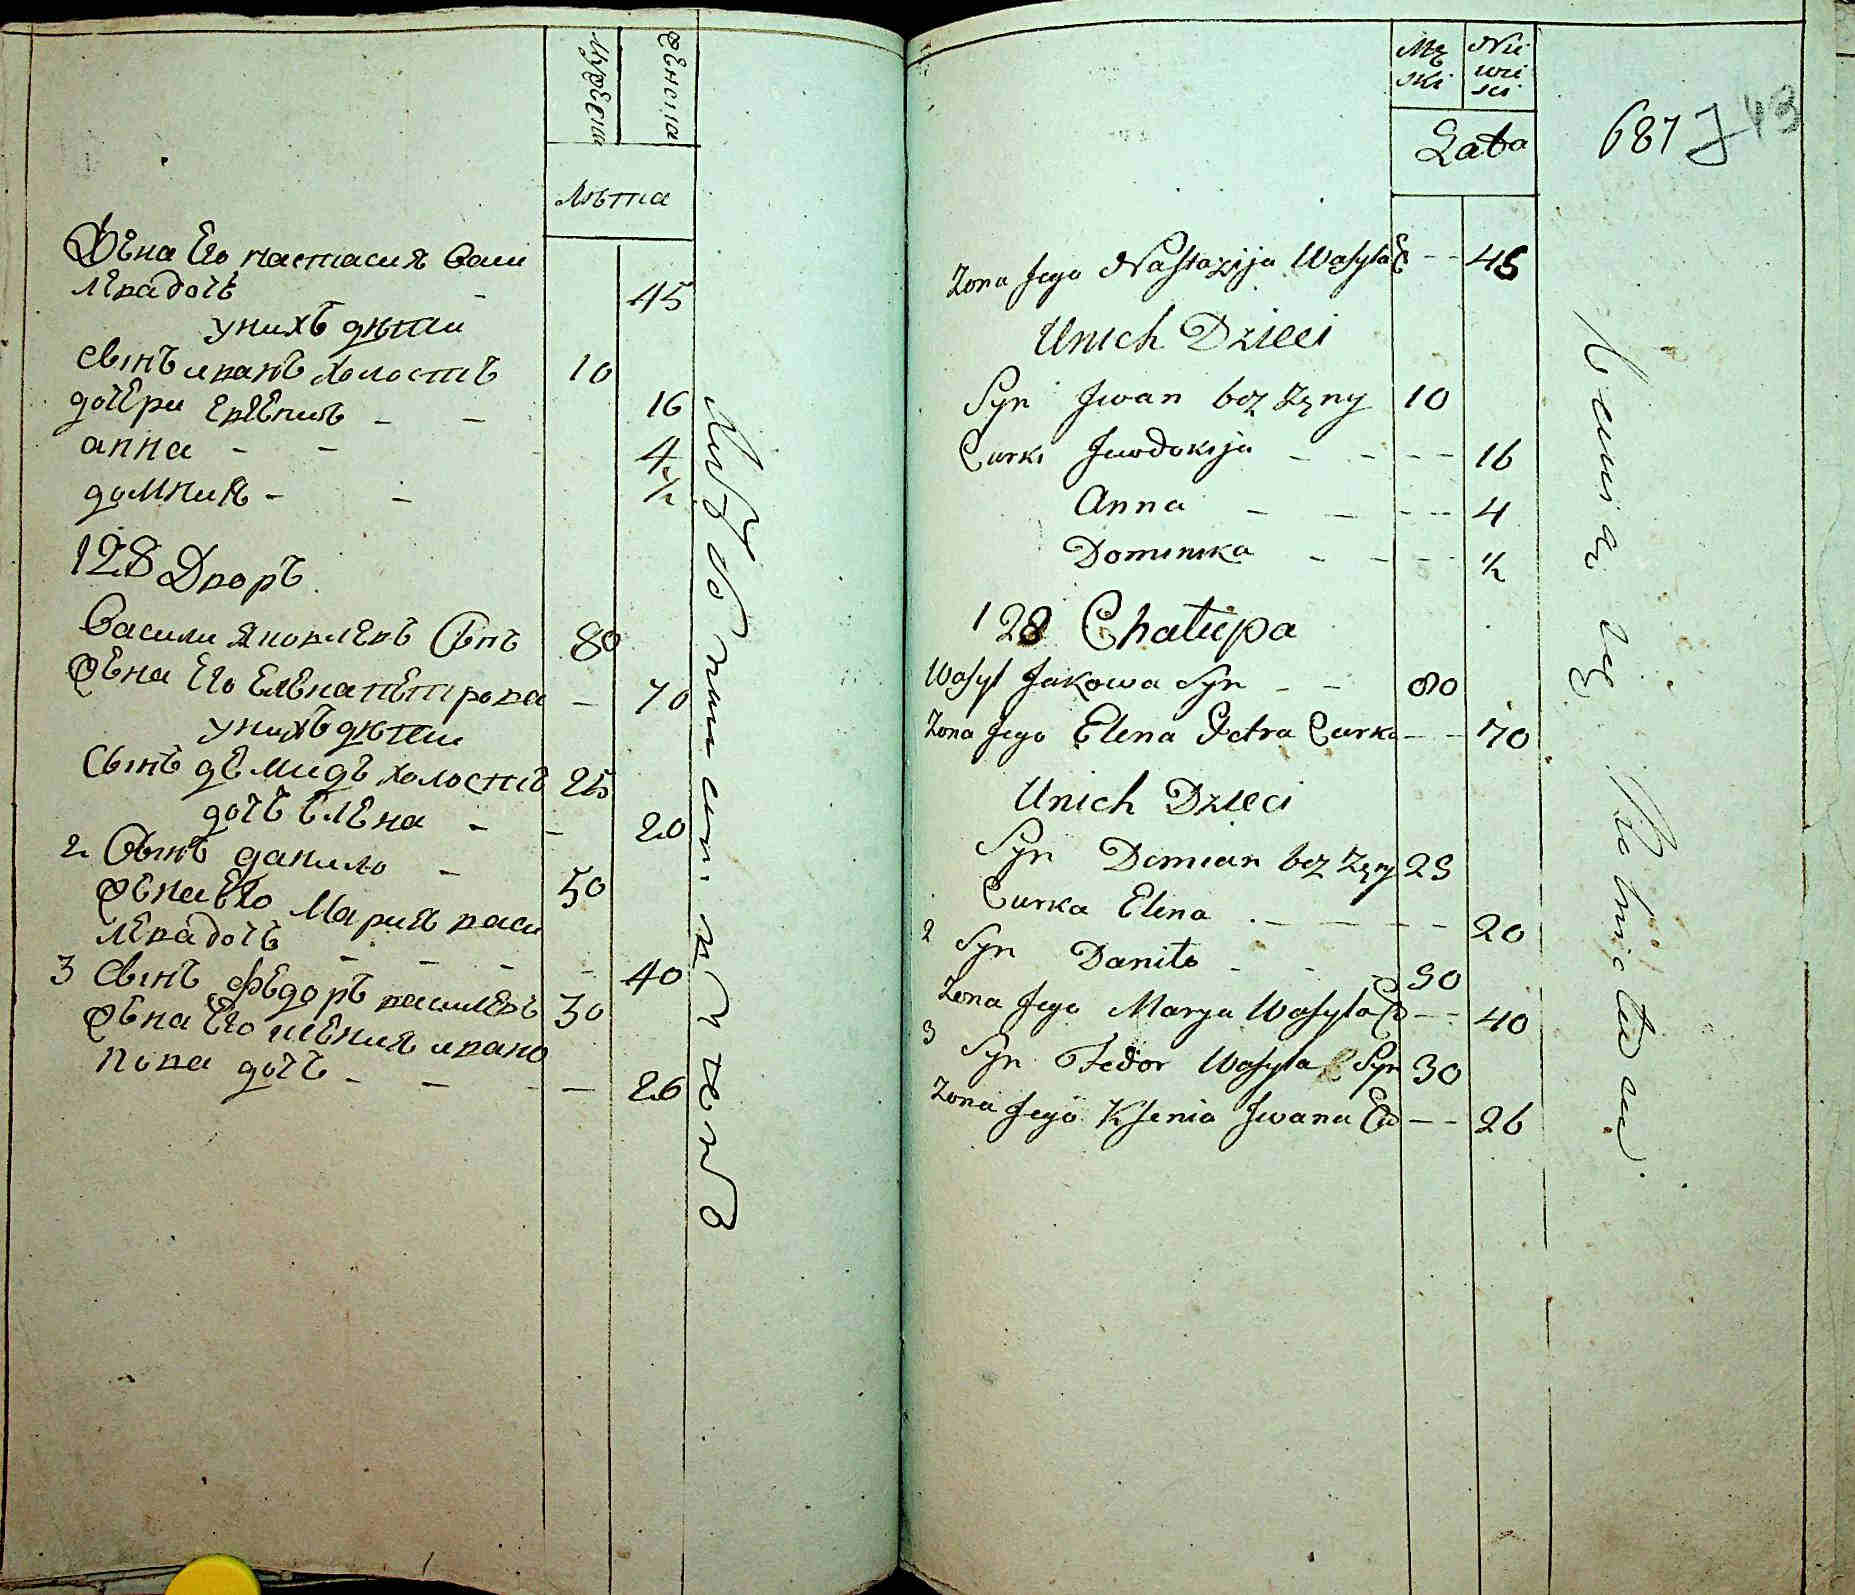 мужеска
женска
Лѣта
Жена Его настасия васи
лЕва дочь
45
унихъ дѣти
сынъ иванъ холостъ 10
дочери Евгения - - 16
анна - - 4
домния - - ½
128 Дворъ
Васили яковлевъ Сынъ 80
жена Его Елена петрова - 70
унихъ дѣти
Сынъ демидъ холостъ 25
дочь Елена - - 20
2 Сынъ данило - 50
жена Его Мария васи
лева дочь - - - - 40
3 Сынъ федоръ василевъ 30
жена Его ксения ивано
нова дочь - - - - 26
Mę
ski
Nie
wie
sci
Lata
687
43
Zona Jego Nastazija Wasyla C - - 45
Unich Dzieci
Syn Jwan bez Zęny 10
Curki Jwdokija - - - - 16
Anna - - - - 4
Dominika - - - - ½
128 Chałupa
Wasyl Jakowa Syn - - 80
Zona Jego Elena Petra Curka - - 70
Unich Dzieci
Syn Demian bez Zęny 25
Curka Elena - - - - 20
2 Syn Daniło - - - 50
Zona Jego Marya Wasyla C - - 40
3
Syn Fedor Wasyla Syn 30
Zona Jego Ksenia Jwana Cu - - 26